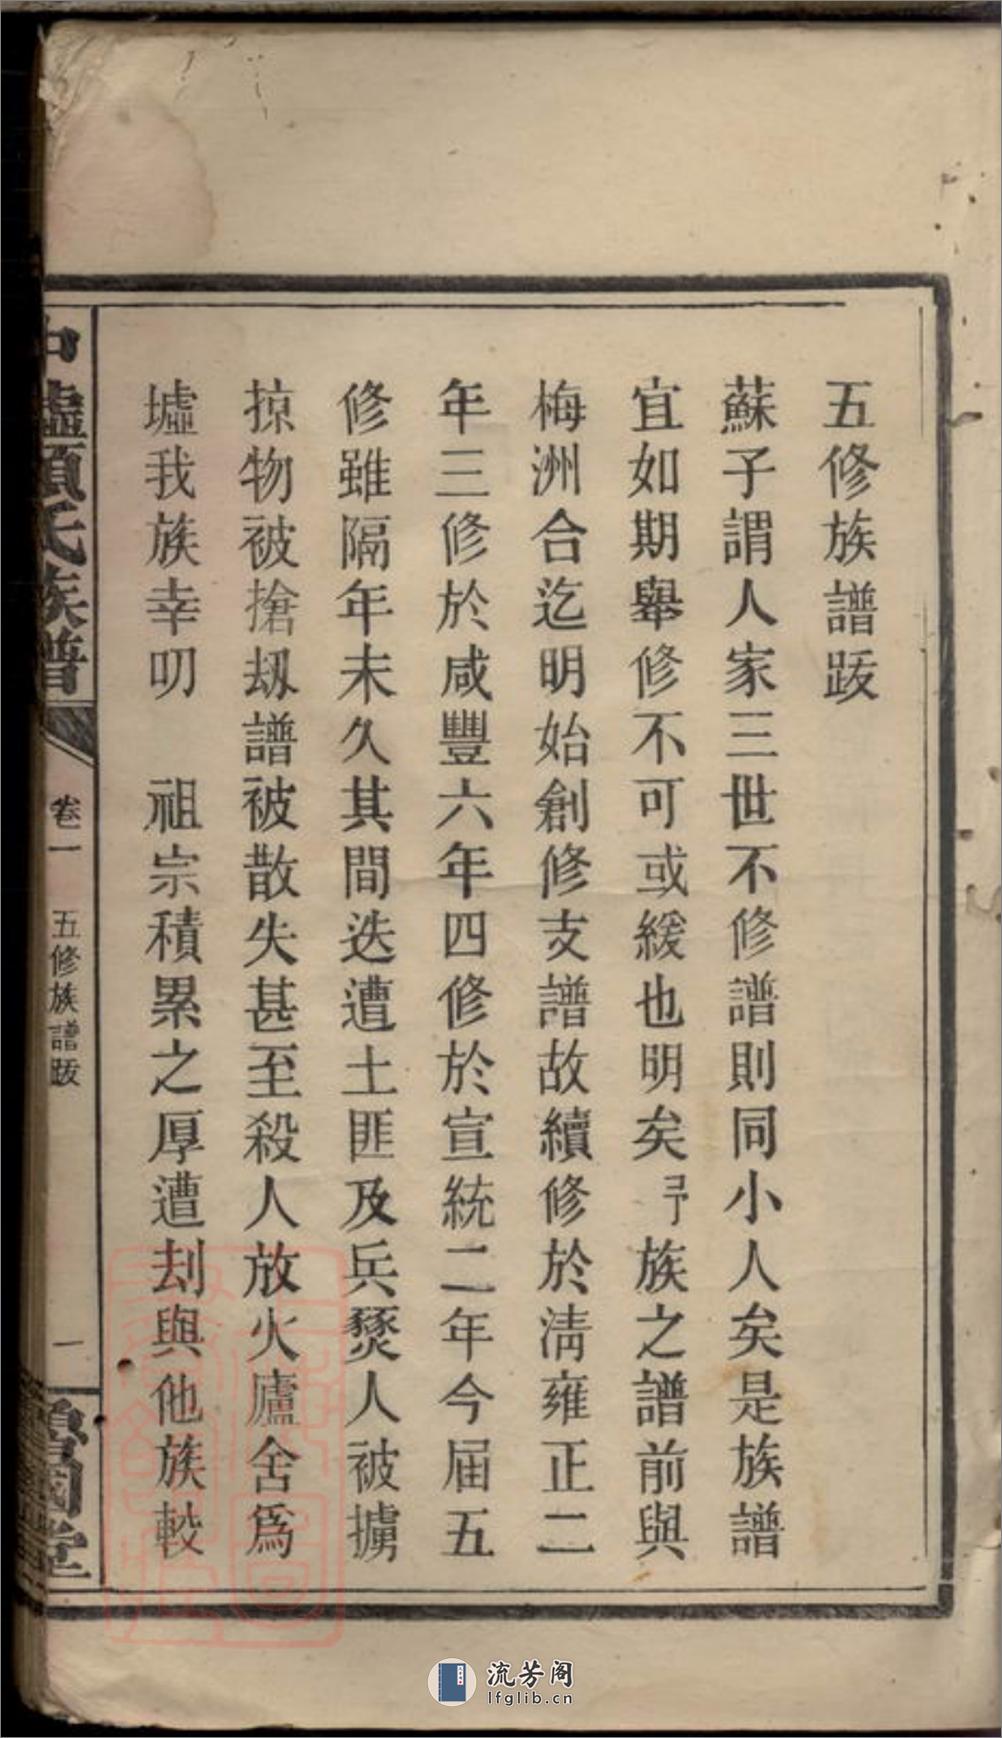 五修族譜跋
蘇子謂人家三世不修譜則同小人矣是族譜
宜如期舉修不可或緩也明矣予族之譜前與
梅洲合迄明始創修支譜故續修於清雍正二
年三修於咸豐六年四修於宣統二年今届五
修雖隔年未久其間迭遭土匪及兵燹人被擄
掠物被搶刼譜被散失甚至殺人放火廬舍爲
墟我族幸叨　祖宗積累之厚遭刦與他族較
墟項氏族譜
卷一
五修族譜跋
一
魯國堂
流芳阁
lfglib.cn